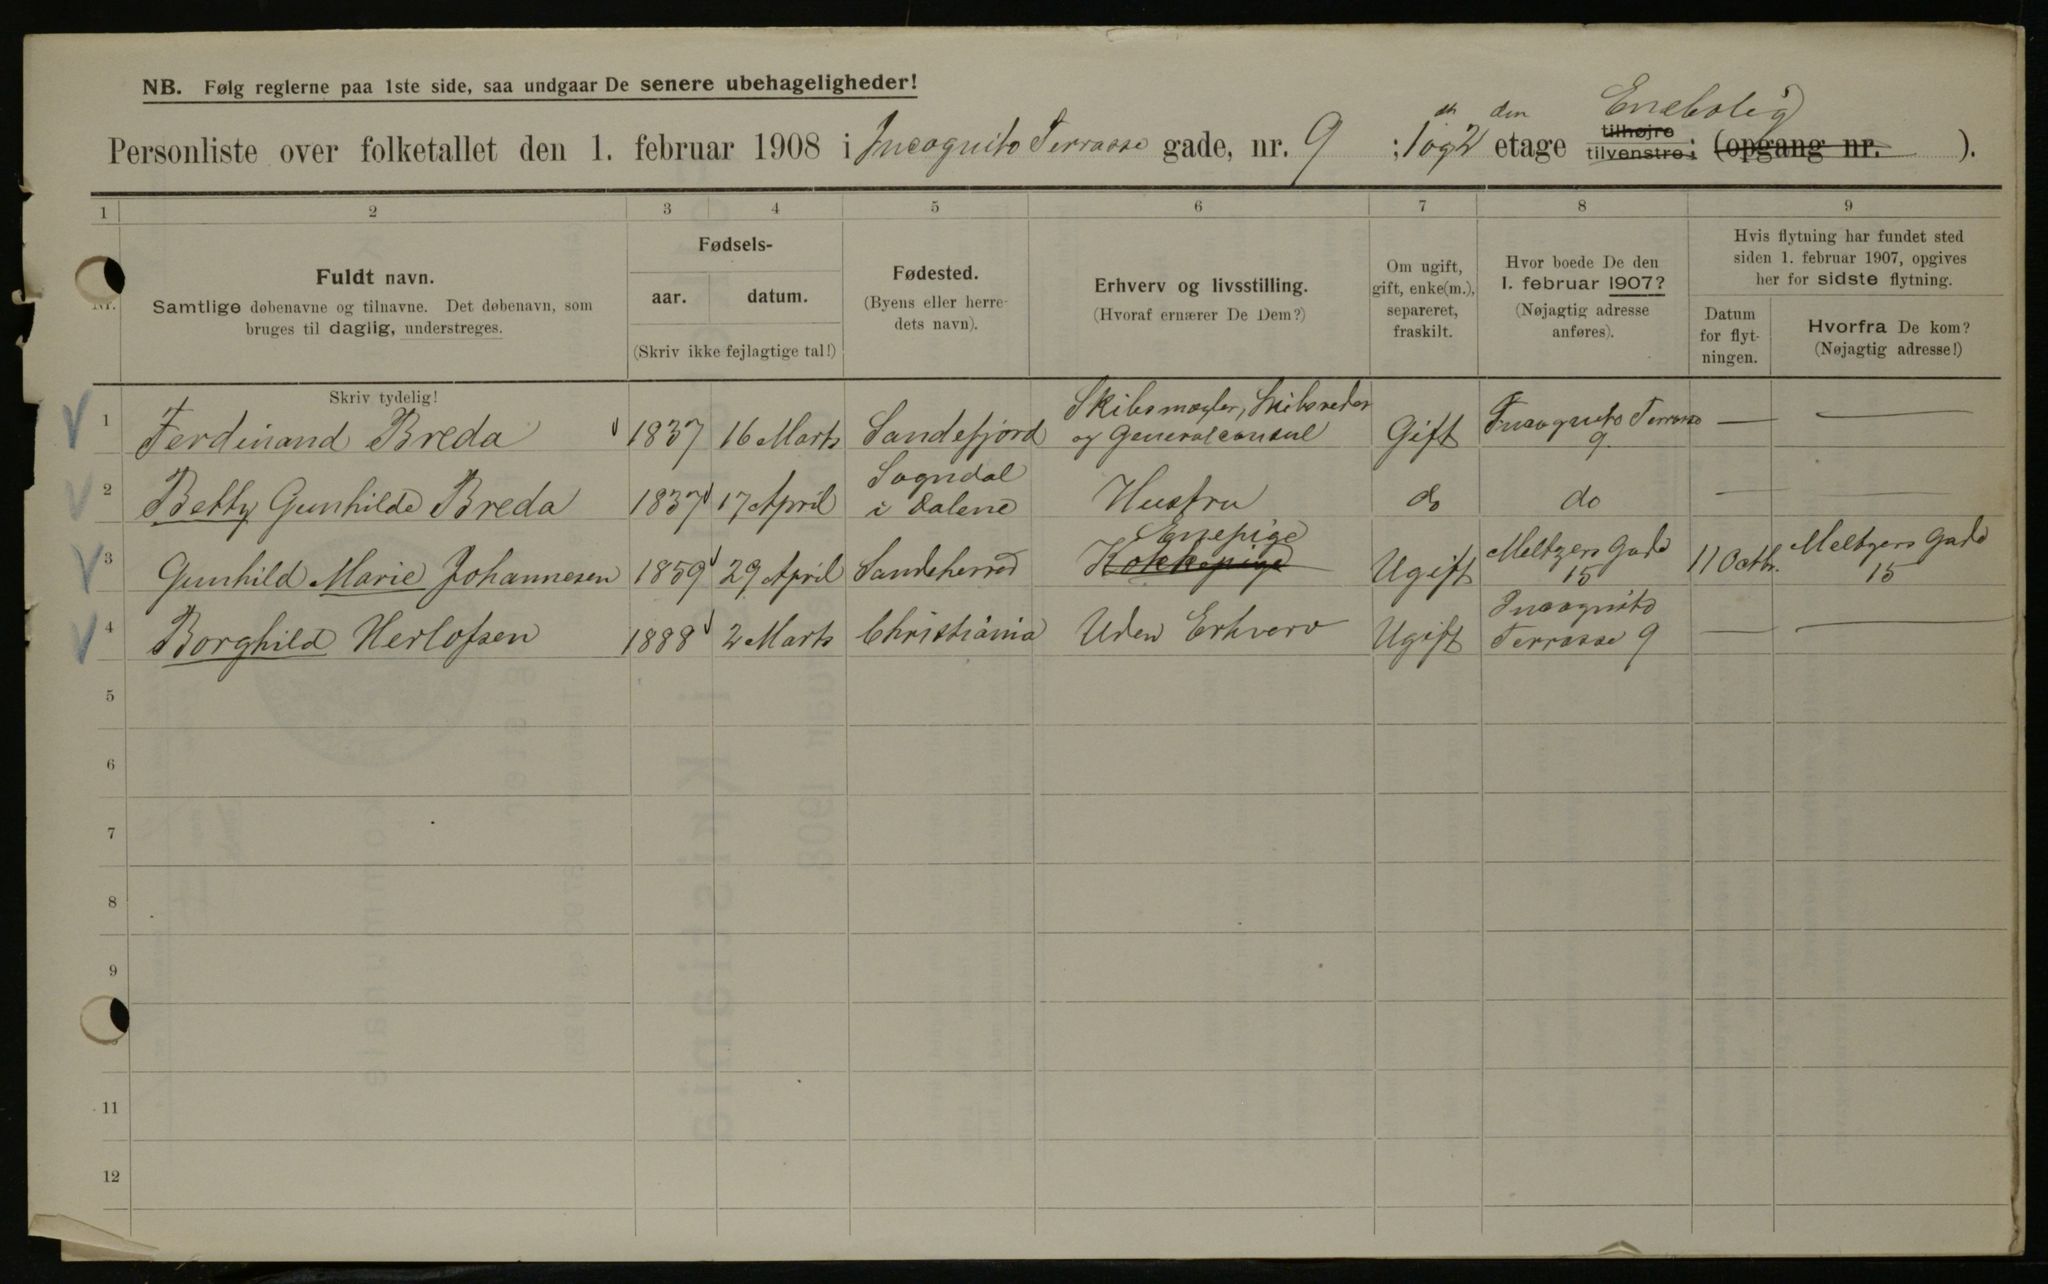 NB. Følg reglerne paa 1ste side, saa undgaar De senere ubehageligheder!
Enebolig
Personliste over folketallet den 1. februar 1908 i Incognito Terrasse gade, nr. 9 ; 1 og 2den etage tilhøjre tilvenstre; (opgang nr. ).
1 2 3 4 5 6 7 8 9
Nr.
Fuldt navn.
Samtlige døbenavne og tilnavne. Det døbenavn, som
bruges til daglig, understreges.
Fødsels-
aar. datum.
(Skriv ikke fejlagtige tal!)
Fødested.
(Byens eller herre-
dets navn).
Erhverv og livsstilling.
(Hvoraf ernærer De Dem?)
Om ugift,
gift, enke(m.),
separeret,
fraskilt.
Hvor boede De den
1. februar 1907?
(Nøjagtig adresse
anføres).
Hvis flytning har fundet sted
siden 1. februar 1907, opgives
her for sidste flytning.
Datum
for flyt-
ningen.
Hvorfra De kom?
(Nøjagtig adresse!)
Skriv tydelig!
1 Ferdinand Breda 1837 16 Marts Sandefjord Skibsmægler, Skibsreder og Generalconsul Gift Incognito Terrasse 9. — —
2 Betty Gunhilde Breda 1837 17 April Sogndal i Dalene Hustru do do — —
3 Gunhild Marie Johannesen 1859 29 April Sandeherred Kokkepige Enepige Ugift Meltzers Gade 15 11 Octbr. Meltzers Gade 15
4 Borghild Herlofsen 1888 2 Marts Christiania Uden Erhverv Ugift Incognito Terrasse 9 — —
5
6
7
8
9
11
12